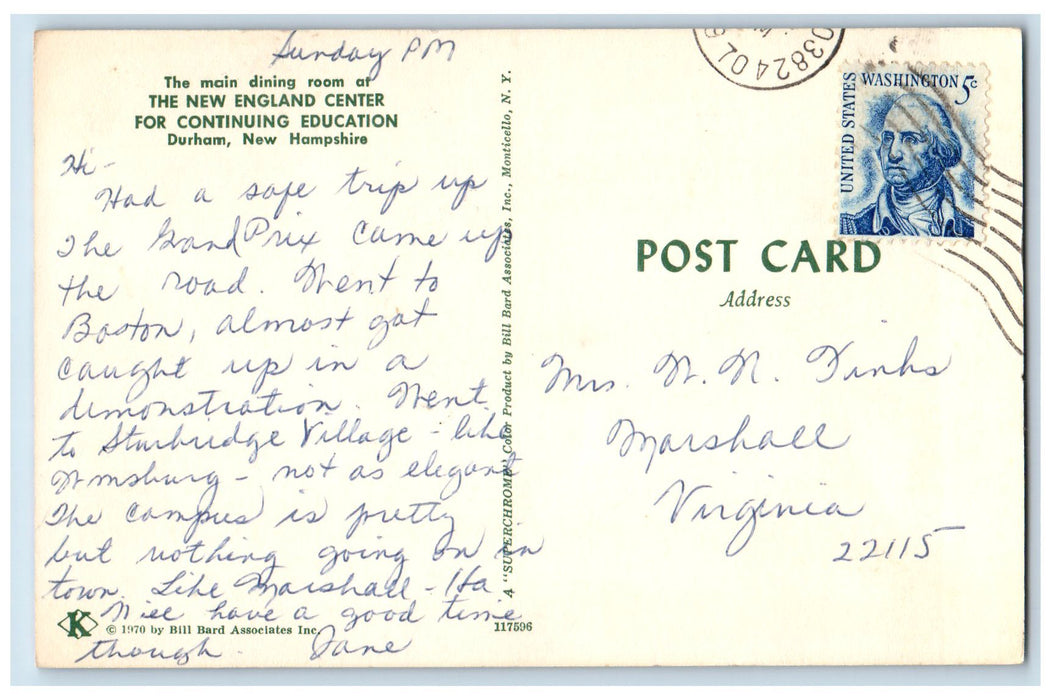 Sunday PM
The main dining room at
THE NEW ENGLAND CENTER
FOR CONTINUING EDUCATION
Durham, New Hampshire
Hi-
Had a safe trip up
The Grand Prix came up
the road. Went to
Boston, almost got
caught up in a
demonstration. Went
to Sturbridge Village - like
Wmsburg - not as elegant
The campus is pretty
but nothing going on in
town. Like Marshall - Ha
Will have a good time
though. Jane
K © 1970 by Bill Bard Associates Inc.
117596
A "SUPERCHROME" Color Product by Bill Bard Associates, Inc., Monticello, N. Y.
03824
UNITED STATES
WASHINGTON 5c
POST CARD
Address
Mrs. W. N. Jinks
Marshall
Virginia
22115